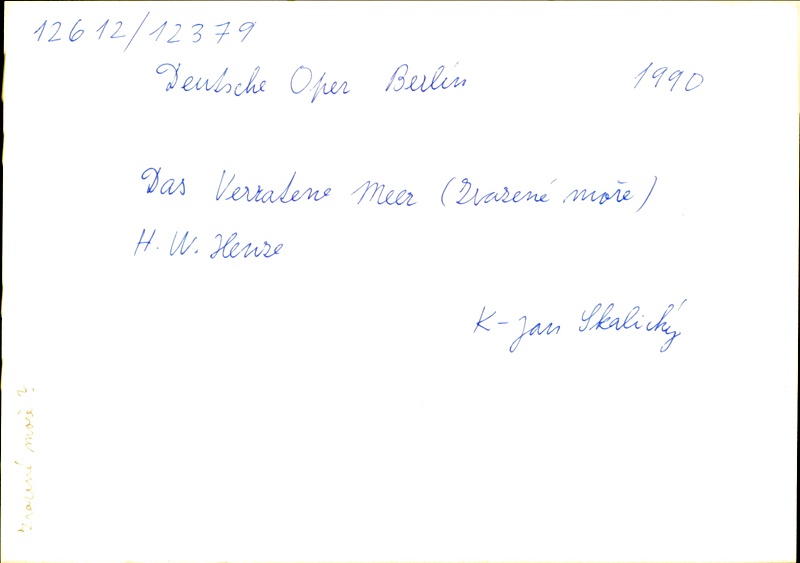 12612/12379
Deutsche Oper Berlin 1990
Das Verratene Meer (Zrazené moře)
H. W. Henze
K - Jan Skalický
moře ?